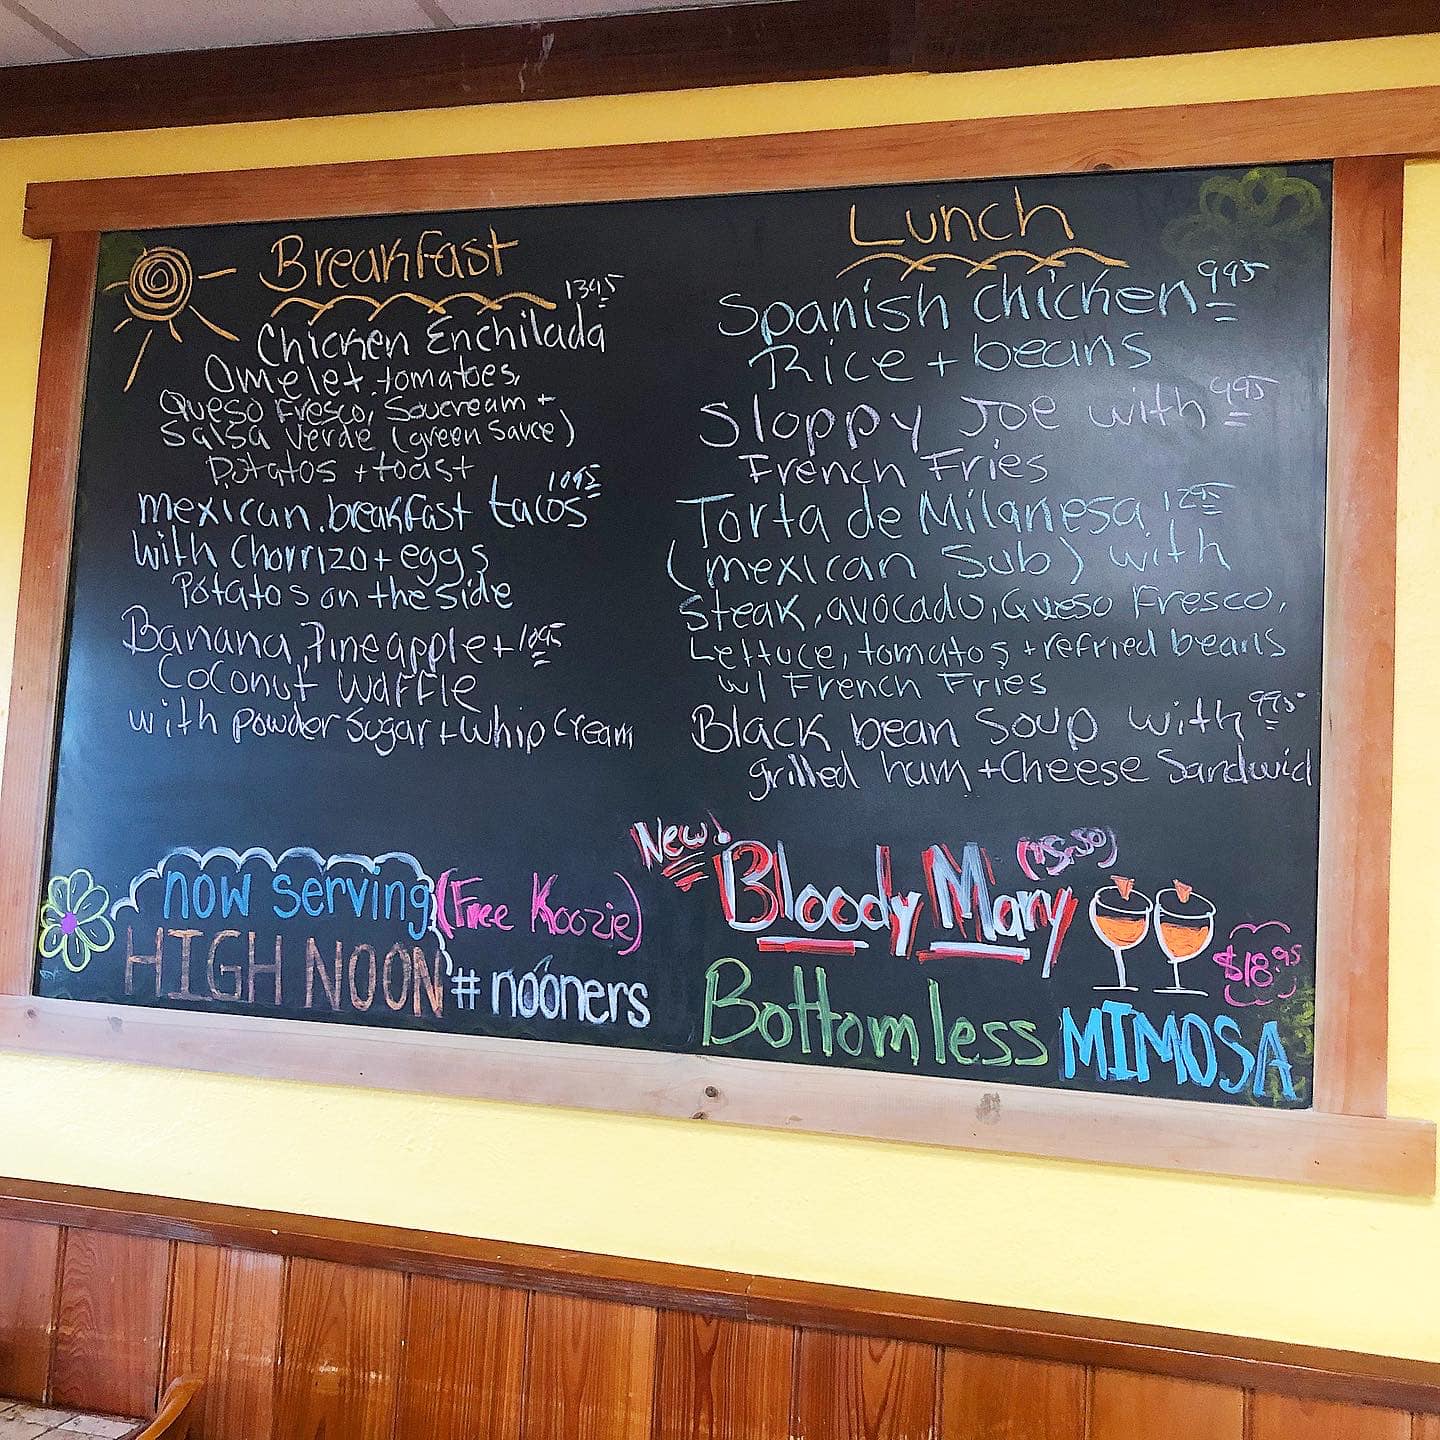 Breakfast
1395
Chicken Enchilada
Omelet, tomatoes,
Queso Fresco, Sourcream +
Salsa Verde (green sauce)
Potatos + toast
mexican breakfast tacos 1095
with Chorrizo + eggs
Potatos on the side
Banana, Pineapple + 1095
Coconut Waffle
with powder Sugar + Whip Cream
now serving (Free Koozie)
HIGH NOON #nooners
Lunch
Spanish chicken 995
Rice + beans
Sloppy Joe with 995
French Fries
Torta de Milanesa 1295
(mexican Sub) with
Steak, avocado, Queso Fresco,
Lettuce, tomatos + refried beans
w/ French Fries
Black bean Soup with 995
grilled ham + Cheese Sandwich
New! Bloody Mary
$18.95
Bottomless MIMOSA